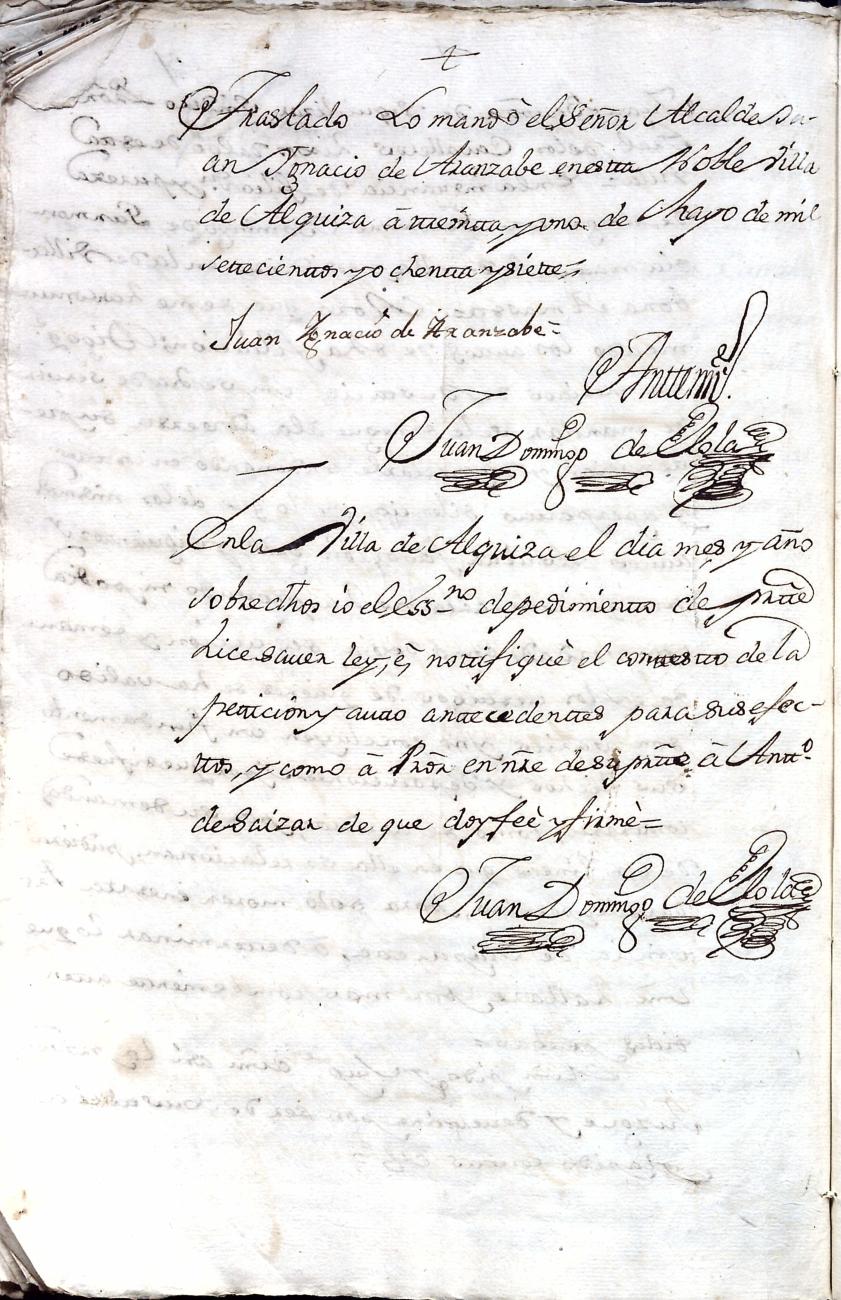 +
Traslado Lo mandò el Señor Alcalde Ju-
an Ignacio de Aranzabe enestta Noble Villa
de Alquiza â tteintta, y uno de Mayo de mil
settecienttos y ochentta y siette=
Juan Ygnacio de Aranzabe=
Anttemi.
Juan Domingo de Elola
Enla Villa de Alquiza el dia mes y año
sobredhos io el Ess.no de pedimientto de partte
hice sauer ley, è, nottifiquè el conttestto de la
petticion y autto anttecedenttes para sus efec-
ttos, y como â Prõr en ñre de su partte â Antt.o
de Saizar de que doy feè y firmè=
Juan Domingo de Elola